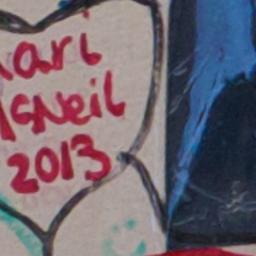 ari
Neil
2013